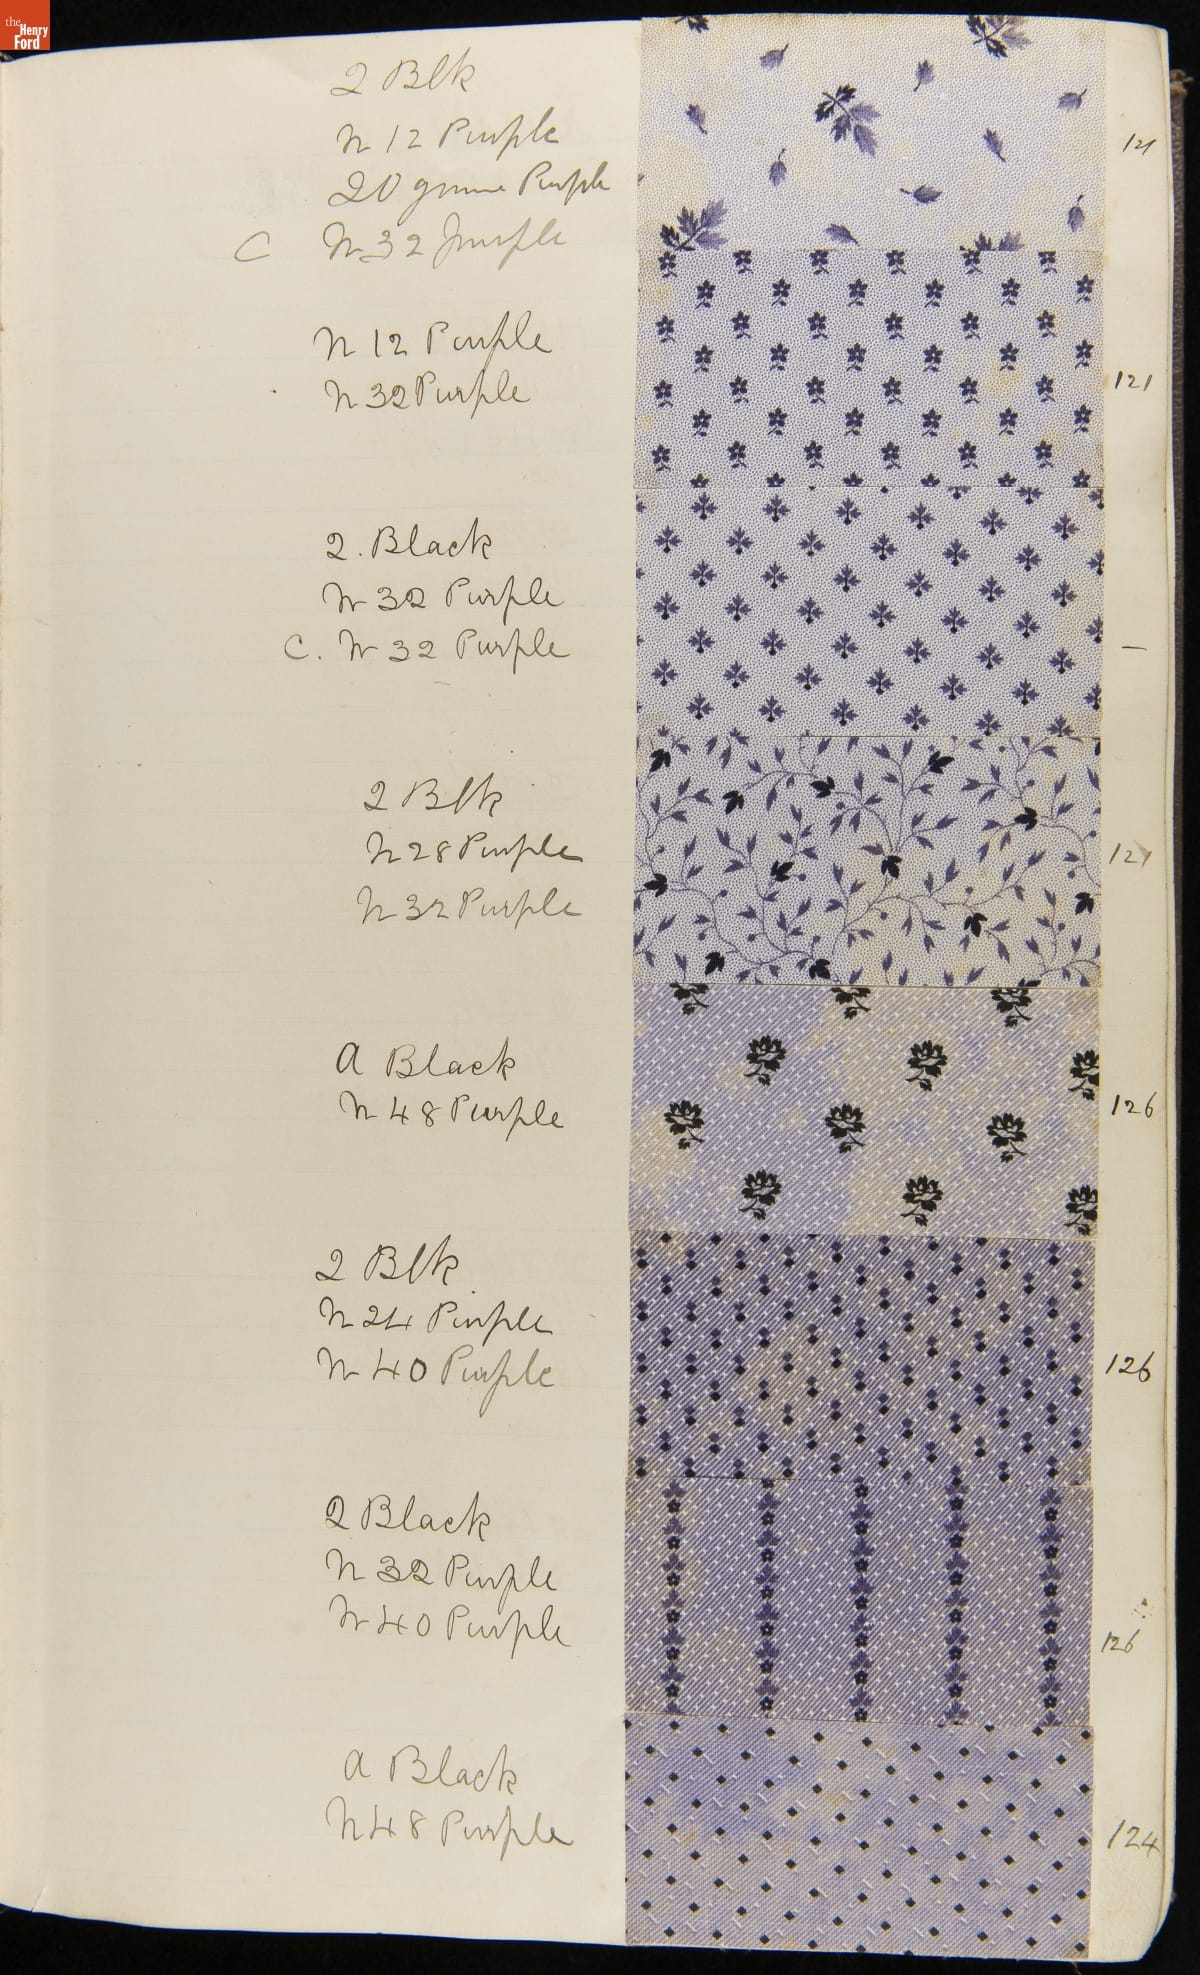 the
Henry
Ford
2 Blk
N 12 Purple
20 Purple
C N 32 Purple
121
N 12 Purple
N 32 Purple
121
2. Black
N 32 Purple
C. N 32 Purple
—
2 Blk
N 28 Purple
N 32 Purple
121
A Black
N 48 Purple
126
2 Blk
N 24 Purple
N 40 Purple
126
2 Black
N 32 Purple
N 40 Purple
126
A Black
N 48 Purple
124